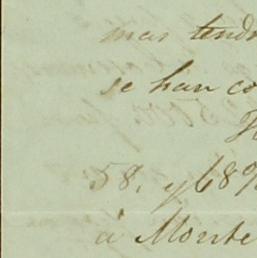 mas tendr
se han co
58. y 68%
à Monte